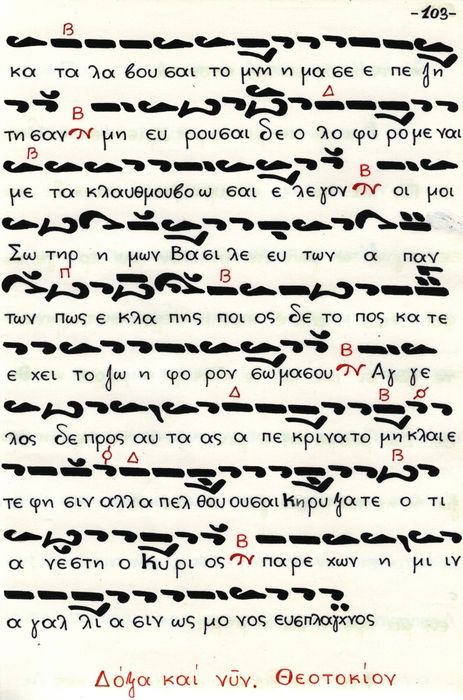 -103-
κα τα λα βου σαι το μνη η μα σε ε πε ζη
τη σαν μη ευ ρουσαι δε ο λο φυ ρο με ναι
με τα κλαυθμουβο ω σαι ε λεγον οι μοι
Σω τηρ η μων Βα σι λε ευ των α παν
των πως ε κλα πης ποι ος δε το πος κα τε
ε χει το ζω η φο ρον σω μα σου Αγ γε
λος δε προς αυ τα ας α πε κρι να το μη κλαι ε
τε φη σιν αλλ α πελ θου ου σαι Κη ρυ ξα τε ο τι
α νε στη ο Κυ ρι ος παρε χων η μι ιν
α γαλ λι α σιν ως μο νος ευσπλαγχνος
Δόξα καί νῦν. Θεοτοκίον